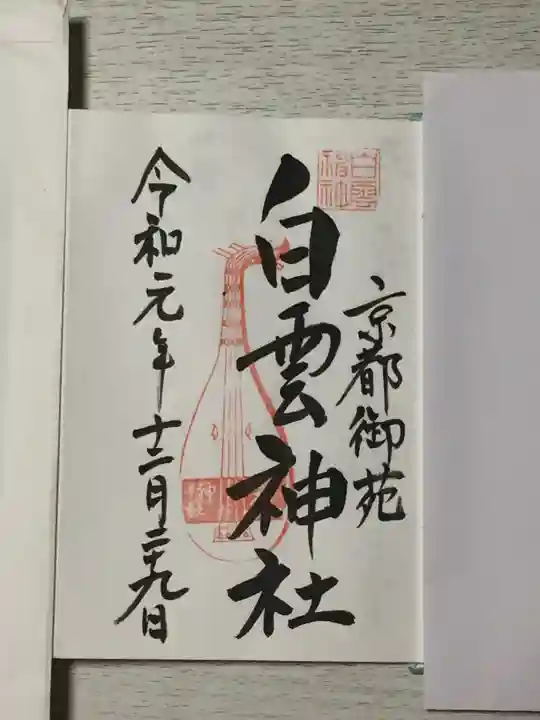 京都御苑
白雲神社
白雲神社
令和元年十二月二十九日